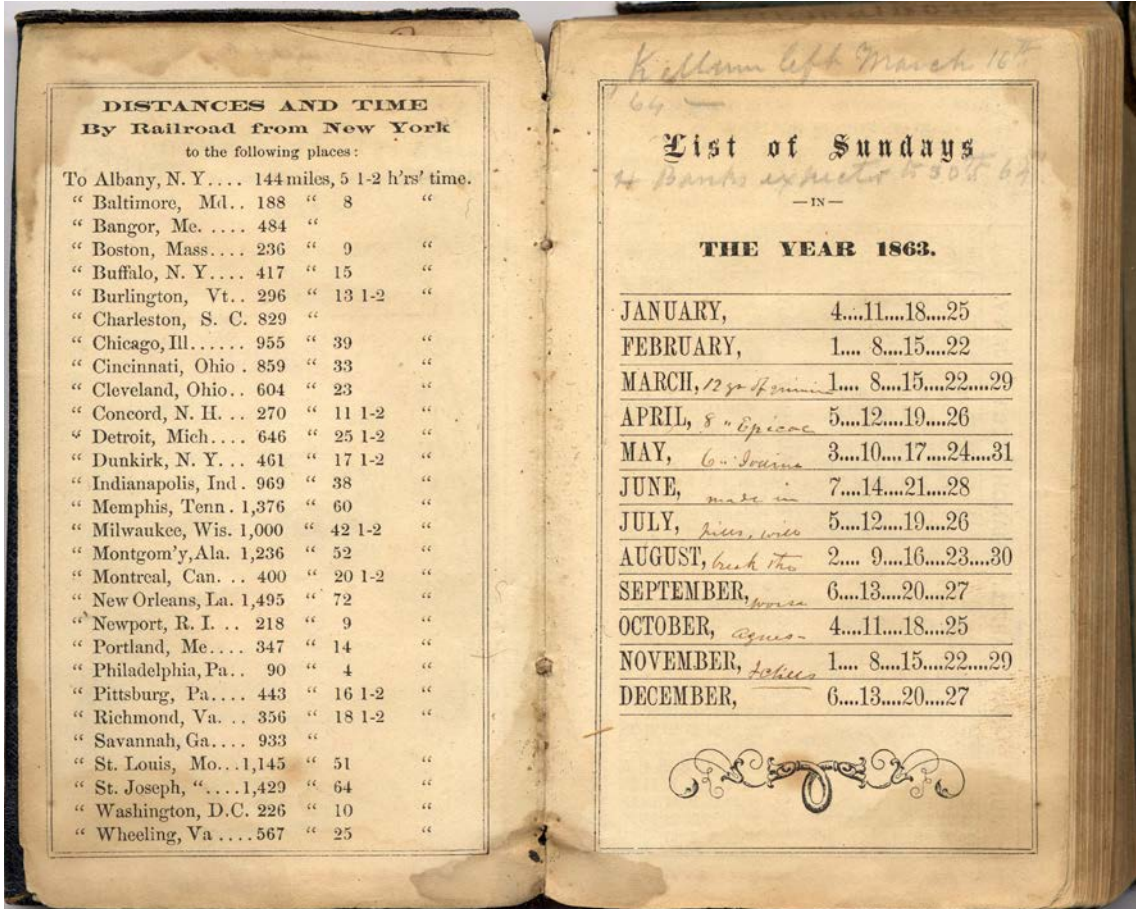 DISTANCES AND TIME
By Railroad from New York
to the following places:
To Albany, N. Y.... 144 miles, 5 1-2 h'rs' time.
“ Baltimore, Md.. 188 “ 8 “
“ Bangor, Me. .... 484 “
“ Boston, Mass.... 236 “ 9 “
“ Buffalo, N. Y.... 417 “ 15 “
“ Burlington, Vt.. 296 “ 13 1-2 “
“ Charleston, S. C. 829 “
“ Chicago, Ill...... 955 “ 39 “
“ Cincinnati, Ohio . 859 “ 33 “
“ Cleveland, Ohio.. 604 “ 23 “
“ Concord, N. H. .. 270 “ 11 1-2 “
“ Detroit, Mich.... 646 “ 25 1-2 “
“ Dunkirk, N. Y... 461 “ 17 1-2 “
“ Indianapolis, Ind . 969 “ 38 “
“ Memphis, Tenn . 1,376 “ 60 “
“ Milwaukee, Wis. 1,000 “ 42 1-2 “
“ Montgom'y, Ala. 1,236 “ 52 “
“ Montreal, Can. .. 400 “ 20 1-2 “
“ New Orleans, La. 1,495 “ 72 “
“ Newport, R. I. .. 218 “ 9 “
“ Portland, Me.... 347 “ 14 “
“ Philadelphia, Pa.. 90 “ 4 “
“ Pittsburg, Pa.... 443 “ 16 1-2 “
“ Richmond, Va. .. 356 “ 18 1-2 “
“ Savannah, Ga.... 933 “
“ St. Louis, Mo...1,145 “ 51 “
“ St. Joseph, “....1,429 “ 64 “
“ Washington, D.C. 226 “ 10 “
“ Wheeling, Va ....567 “ 25 “
left March 16th
64 —
List of Sundays
Banks 30th 64
— IN —
THE YEAR 1863.
JANUARY, 4....11....18....25
FEBRUARY, 1.... 8....15....22
MARCH, 12 gr of 1.... 8....15....22....29
APRIL, 8 " Epicac 5....12....19....26
MAY, 6 " Iodine 3....10....17....24....31
JUNE, made in 7....14....21....28
JULY, pills, will 5....12....19....26
AUGUST, break the 2.... 9....16....23....30
SEPTEMBER, worse 6....13....20....27
OCTOBER, agues 4....11....18....25
NOVEMBER, 1.... 8....15....22....29
DECEMBER, 6....13....20....27